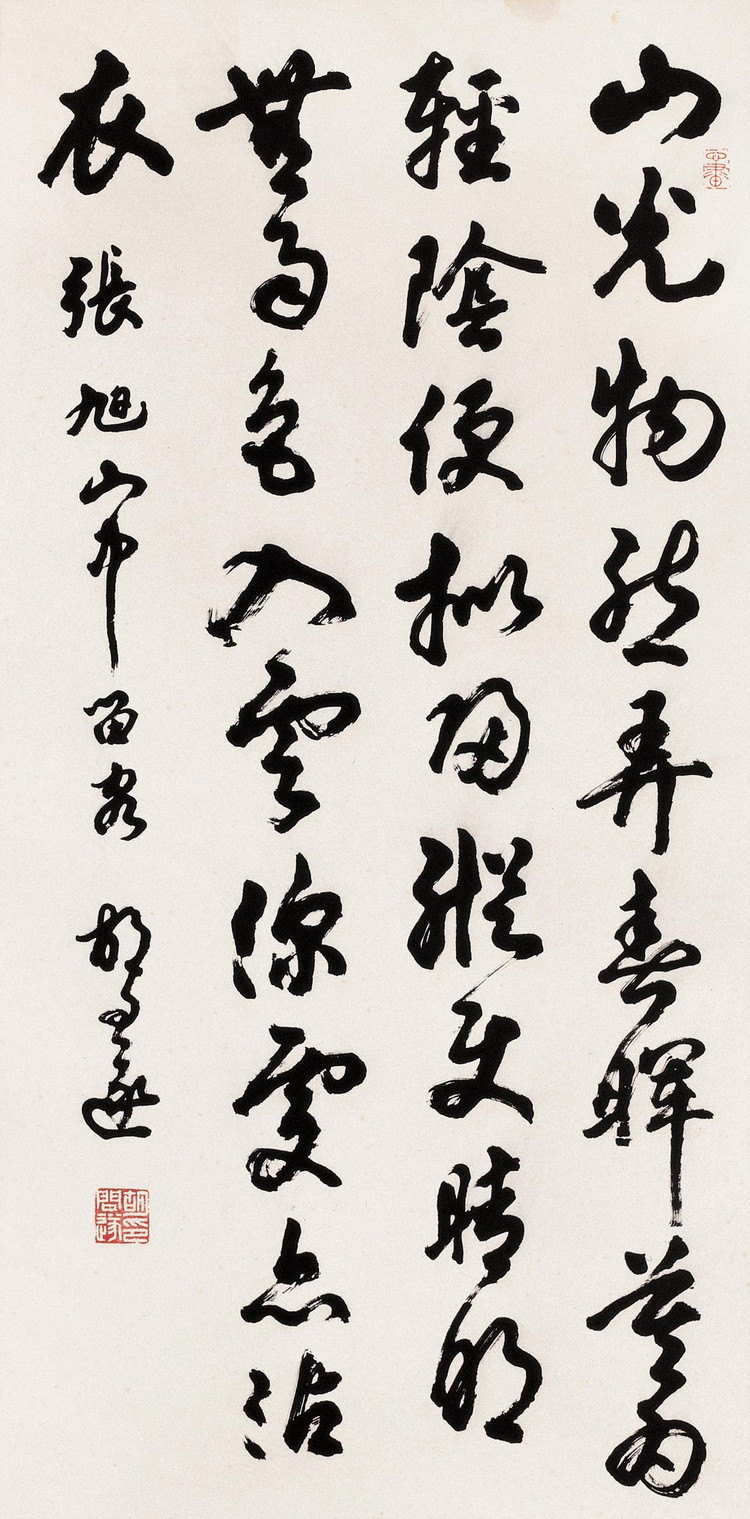 山光物態弄春暉莫為
輕陰便擬歸縱使晴明
無雨色入雲深處亦沾
衣 張旭山中留客 胡問遂
心畫
胡印問遂